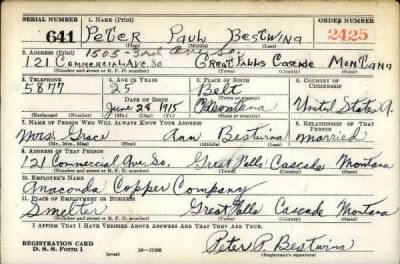 SERIAL NUMBER 1. NAME (Print) ORDER NUMBER
641 Peter Paul Bestwina 2425
(First) (Middle) (Last)
2. ADDRESS (Print) 1505-3rd Ave So.
121 Commercial Ave. So Great Falls Cascade Montana
(Number and street or R. F. D. number) (Town) (County) (State)
3. TELEPHONE 4. AGE IN YEARS 5. PLACE OF BIRTH 6. COUNTRY OF CITIZENSHIP
5877 25 Belt
DATE OF BIRTH (Town or county)
June 28 1915 Montana United States A
(Exchange) (Number) (Mo.) (Day) (Yr.) (State or country)
7. NAME OF PERSON WHO WILL ALWAYS KNOW YOUR ADDRESS 8. RELATIONSHIP OF THAT PERSON
Mrs. Grace Ann Bestwina married
(Mr., Mrs., Miss) (First) (Middle) (Last)
9. ADDRESS OF THAT PERSON
121 Commercial Ave. So. Great Falls Cascade Montana
(Number and street or R. F. D. number) (Town) (County) (State)
10. EMPLOYER'S NAME
Anaconda Copper Company
11. PLACE OF EMPLOYMENT OR BUSINESS
Smelter Great Falls Cascade Montana
(Number and street or R. F. D. number) (Town) (County) (State)
I AFFIRM THAT I HAVE VERIFIED ABOVE ANSWERS AND THAT THEY ARE TRUE.
REGISTRATION CARD
D. S. S. Form 1 (over) Peter P. Bestwina
(Registrant's signature)